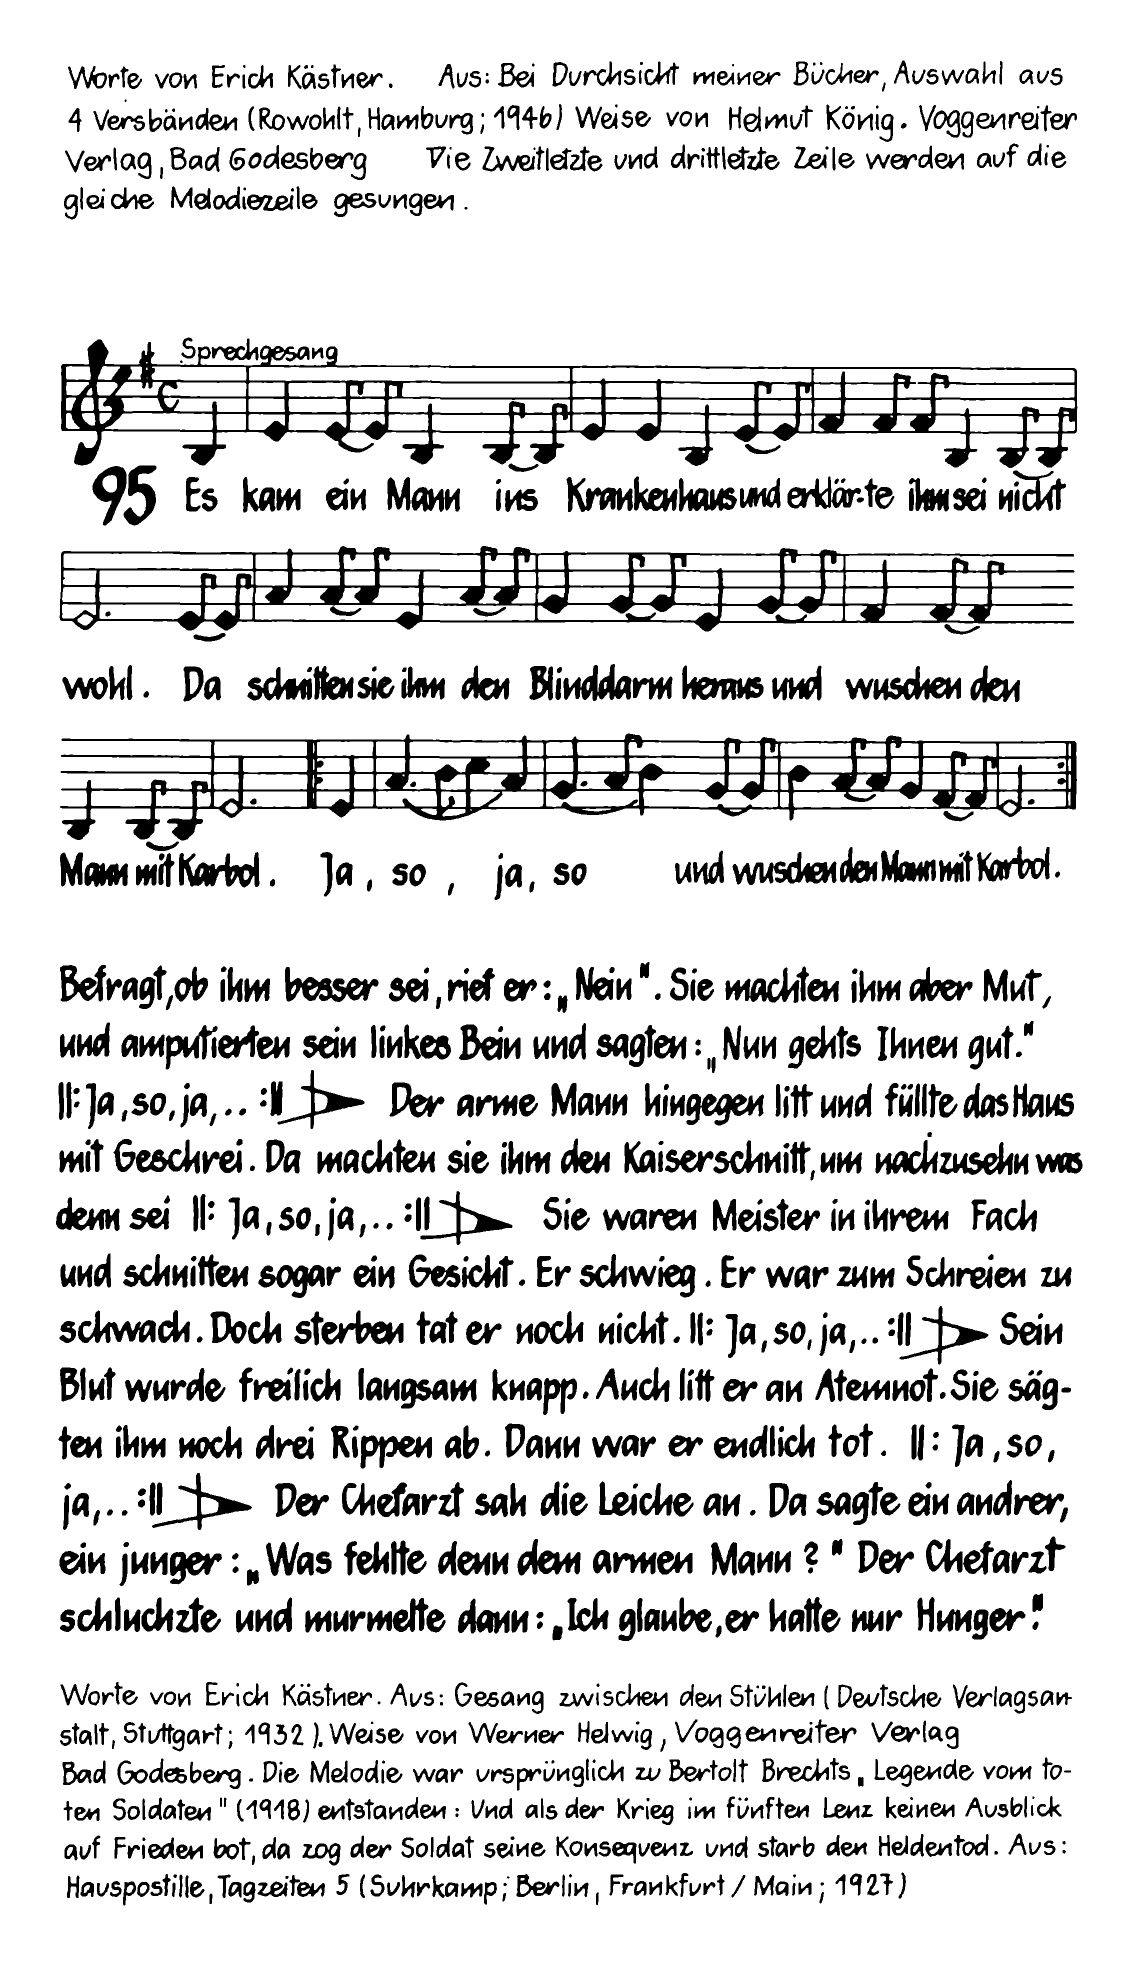 Worte von Erich Kästner. Aus: Bei Durchsicht meiner Bücher, Auswahl aus
4 Versbänden (Rowohlt, Hamburg; 1946) Weise von Helmut König. Voggenreiter
Verlag, Bad Godesberg Die Zweitletzte und drittletzte Zeile werden auf die
gleiche Melodiezeile gesungen.
Sprechgesang
95 Es kam ein Mann ins Krankenhaus und erklär-te ihm sei nicht
wohl. Da schnitten sie ihm den Blinddarm heraus und wuschen den
Mann mit Karbol. Ja, so, ja, so und wuschen den Mann mit Karbol.
Befragt, ob ihm besser sei, rief er: „Nein". Sie machten ihm aber Mut,
und amputierten sein linkes Bein und sagten: „Nun gehts Ihnen gut."
||: Ja, so, ja, .. :|| Der arme Mann hingegen litt und füllte das Haus
mit Geschrei. Da machten sie ihm den Kaiserschnitt, um nachzusehn was
denn sei ||: Ja, so, ja, .. :|| Sie waren Meister in ihrem Fach
und schnitten sogar ein Gesicht. Er schwieg. Er war zum Schreien zu
schwach. Doch sterben tat er noch nicht. ||: Ja, so, ja, .. :|| Sein
Blut wurde freilich langsam knapp. Auch litt er an Atemnot. Sie säg-
ten ihm noch drei Rippen ab. Dann war er endlich tot. ||: Ja, so,
ja, .. :|| Der Chefarzt sah die Leiche an. Da sagte ein andrer,
ein junger: „Was fehlte denn dem armen Mann?" Der Chefarzt
schluchzte und murmelte dann: „Ich glaube, er hatte nur Hunger."
Worte von Erich Kästner. Aus: Gesang zwischen den Stühlen (Deutsche Verlagsan-
stalt, Stuttgart; 1932). Weise von Werner Helwig, Voggenreiter Verlag
Bad Godesberg. Die Melodie war ursprünglich zu Bertolt Brechts „Legende vom to-
ten Soldaten" (1918) entstanden: Und als der Krieg im fünften Lenz keinen Ausblick
auf Frieden bot, da zog der Soldat seine Konsequenz und starb den Heldentod. Aus:
Hauspostille, Tagzeiten 5 (Suhrkamp; Berlin, Frankfurt / Main; 1927)